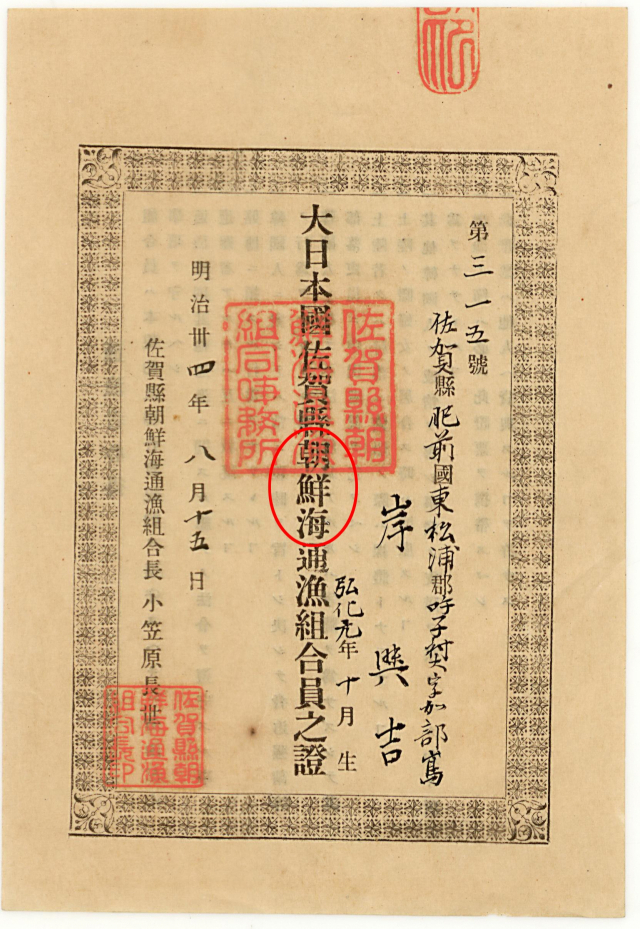 第三一五號
佐賀縣肥前國東松浦郡呼子村大字加部嶌
岸與吉
弘化元年十月生
大日本國佐賀縣朝鮮海通漁組合員之證
明治卅四年八月十五日
佐賀縣朝鮮海通漁組合長小笠原長世
佐賀縣朝
鮮海通漁
組合事務所
佐賀縣朝
鮮海通漁
組合長印